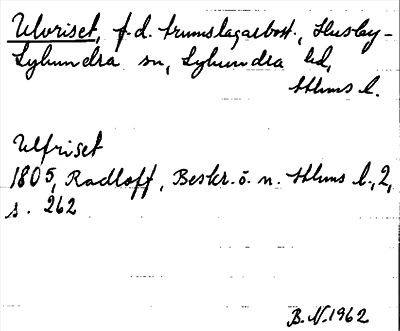 Ulvriset, f.d. trumslagarbost., Husby-
Lyhundra sn, Lyhundra hd,
Sthlms l.
Ulfriset
1805, Radloff, Beskr. ö. n. Sthlms l., 2,
s. 262
B.N. 1962